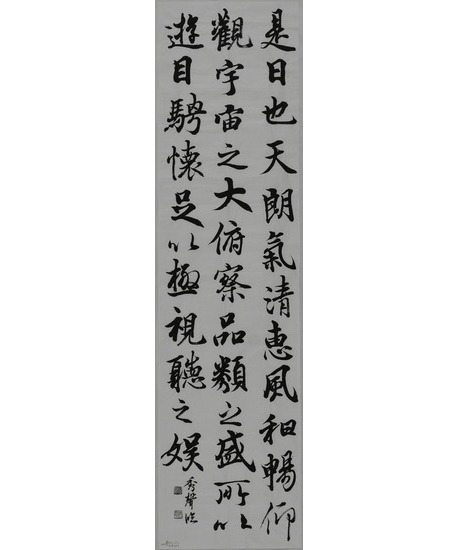 是日也天朗氣清惠風和暢仰
觀宇宙之大俯察品類之盛所以
遊目騁懷足以極視聽之娱
秀聲臨